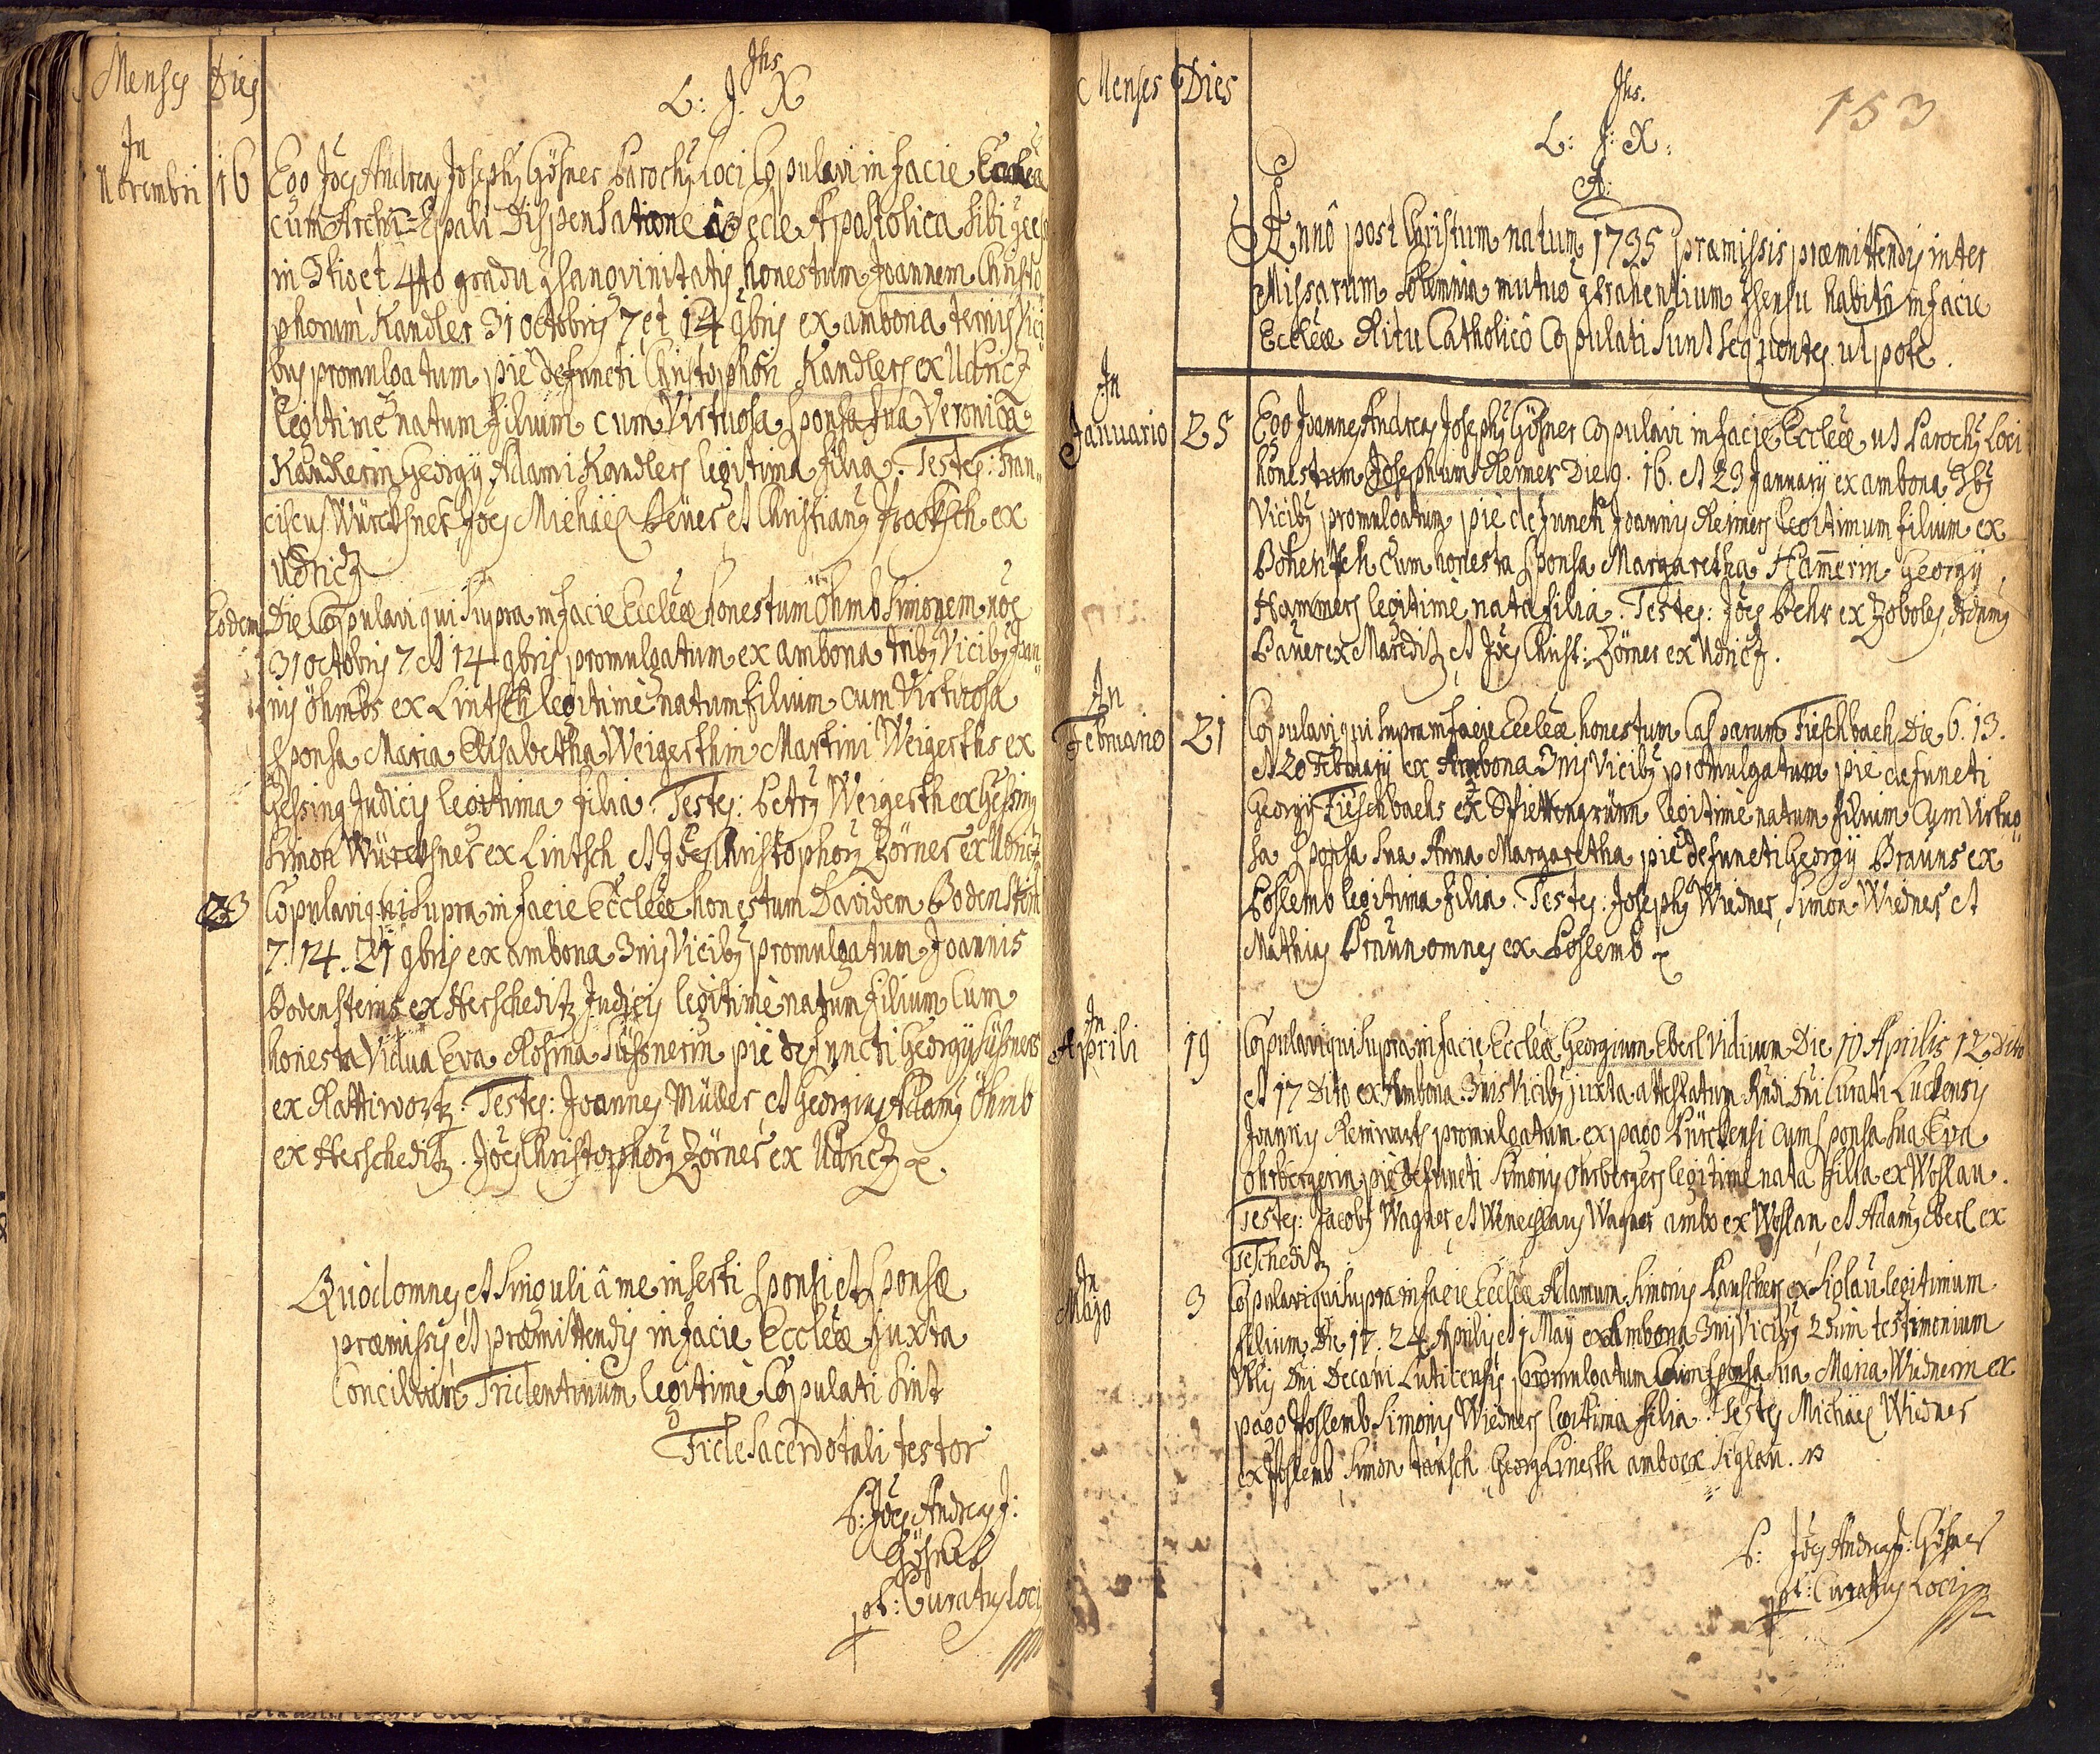 Menses Dies
Jhs
L: J: X
In
Novembri 16 Ego Jões Andreas Josephq Gößner Parochq Loci Copulavi in facie Eccleæ
cum Archi-Epali Dispensatione â Sede Apostolica sibi
in 3tio et 4to gradu honestum Joannem Christo
phorum Kandler 31 octobris 7 et 14 9bris ex ambona ternis Vici
bus promulgatum pie defuncti Christophori Kandlers ex Udricz
legitimè natum filium cum Virtuosa sponsa sua Veronica
Kandlerin Georgij Adami Kandlers legitima filia. Testes: Fran„
ciscus Würckhner, Jões Michael Beüer et Christianq ex
Udricz
Eodem Die Copulavi qui supra in facie Eccleæ honestum Öhmb Simonem
31 octobris 7 et 14 9bris promulgatum ex ambona tribq Vicibq Joan„
nis Öhmbs ex Lintsch legitimè natum filium cum Virtuosa
sponsa Maria Elisabetha Weigerthin Martini Weigerths ex
Gessing Judicis legitima filia. Testes: Petrq Weigerth ex Gessing
Simon Würckhner ex Lintsch et Jões Christophorq Zörner ex Udricz
23 Copulavi qui supra in facie Eccleæ honestum Davidem Bodenstein
7. 14. 21 9bris ex ambona 3nis Vicibq promulgatum Joannis
Bodensteins ex Herscheditz Judicis legitimè natum filium Cum
honesta Vidua Eva Rosina Süssnerin pie defuncti Georgij Süssners
ex Rattiwortz. Testes: Joannes Müller et Georgius Adamq Öhmb
ex Herscheditz. Jões Christophorq Zörner ex Udricz
Quod omnes et singuli â me inserti sponsi et sponsæ
præmissis et præmittendis in facie Eccleæ juxta
Concilium Tridentinum legitimè Copulati sint
Fide Sacerdotali testor
P: Jões Andreas J:
Gößner
pt: Curatus Loci
Menses Dies
Jhs.
153
L: J: X:
A:
Annô post Christum natum 1735 præmissis præmittendis inter
Missarum Solemnia mutuo habitô in facie
Eccleæ Ritu Catholicô Copulati sunt sequentes. utpote.
In
Januario 25 Ego Joannes Andreas Josephq Gößner Copulavi in facie Eccleæ ut Parochq Loci
honestum Josephum Reimer Die 9. 16. et 23 Januarij ex ambona 3bq
Vicibq promulgatum pie defuncti Joannis Reimers legitimum filium ex
cum honesta sponsa Margaretha Ham̄erin Georgij
Hammers legitimè nata filia. Testes: Jões Behr ex Zoboles, Adamq
Bauer ex Mareditz et Jões Christ: Zörner ex Udricz.
In
Februario 21 Copulavi qui supra in facie Eccleæ honestum Casparum Fieschbach Die 6. 13.
et 20 Februarij ex Ambona 3nis Vicibq promulgatum pie defuncti
Georgij Fieschbachs ex legitimè natum filium Cum Virtuo„
sa sponsa sua Anna Margaretha pie defuncti Georgij Brauns ex
Poslemb legitima filia. Testes: Josephq Wiedner, Simon Wiedner et
Mathias Braun omnes ex Poslemb
In
Aprili 19 Copulavi qui supra in facie Eccleæ Georgium Eberl Viduum Die 10 Aprilis 12 dito
et 17 Dito ex Ambona 3nis Vicibq juxta attestatum Rndi Dni Curati Luckensis
Joannis Reinwarts promulgatum ex pago Lürckensi cum sponsa sua Eva
Ohrbergerin pie defuncti Simonis Ohrbergers legitimè nata filia ex Woslau.
Testes: Jacobq Wagner, et Wenceslaus Wagner ambo ex Woslau, et Adamq Eberl ex
Tescheditz
In
Mayo 3 Copulavi qui supra in facie Eccleæ Adamum Simonis Lauscher ex Siglau legitimum
filium Die 17. 24 Aprilis et 1 Maij ex Ambona 3nis Vicibq testimonium
Dni Decani Luticensis promulgatum Cum sponsa sua Maria Wiednerin ex
pago Poslemb Simonis Wiedners legitima filia. Testes Michael Wiedner
ex Poslemb, Simon Georg ambo ex Siglau.
P: Jões Andreas J: Gößner
pt: Curatus Loci